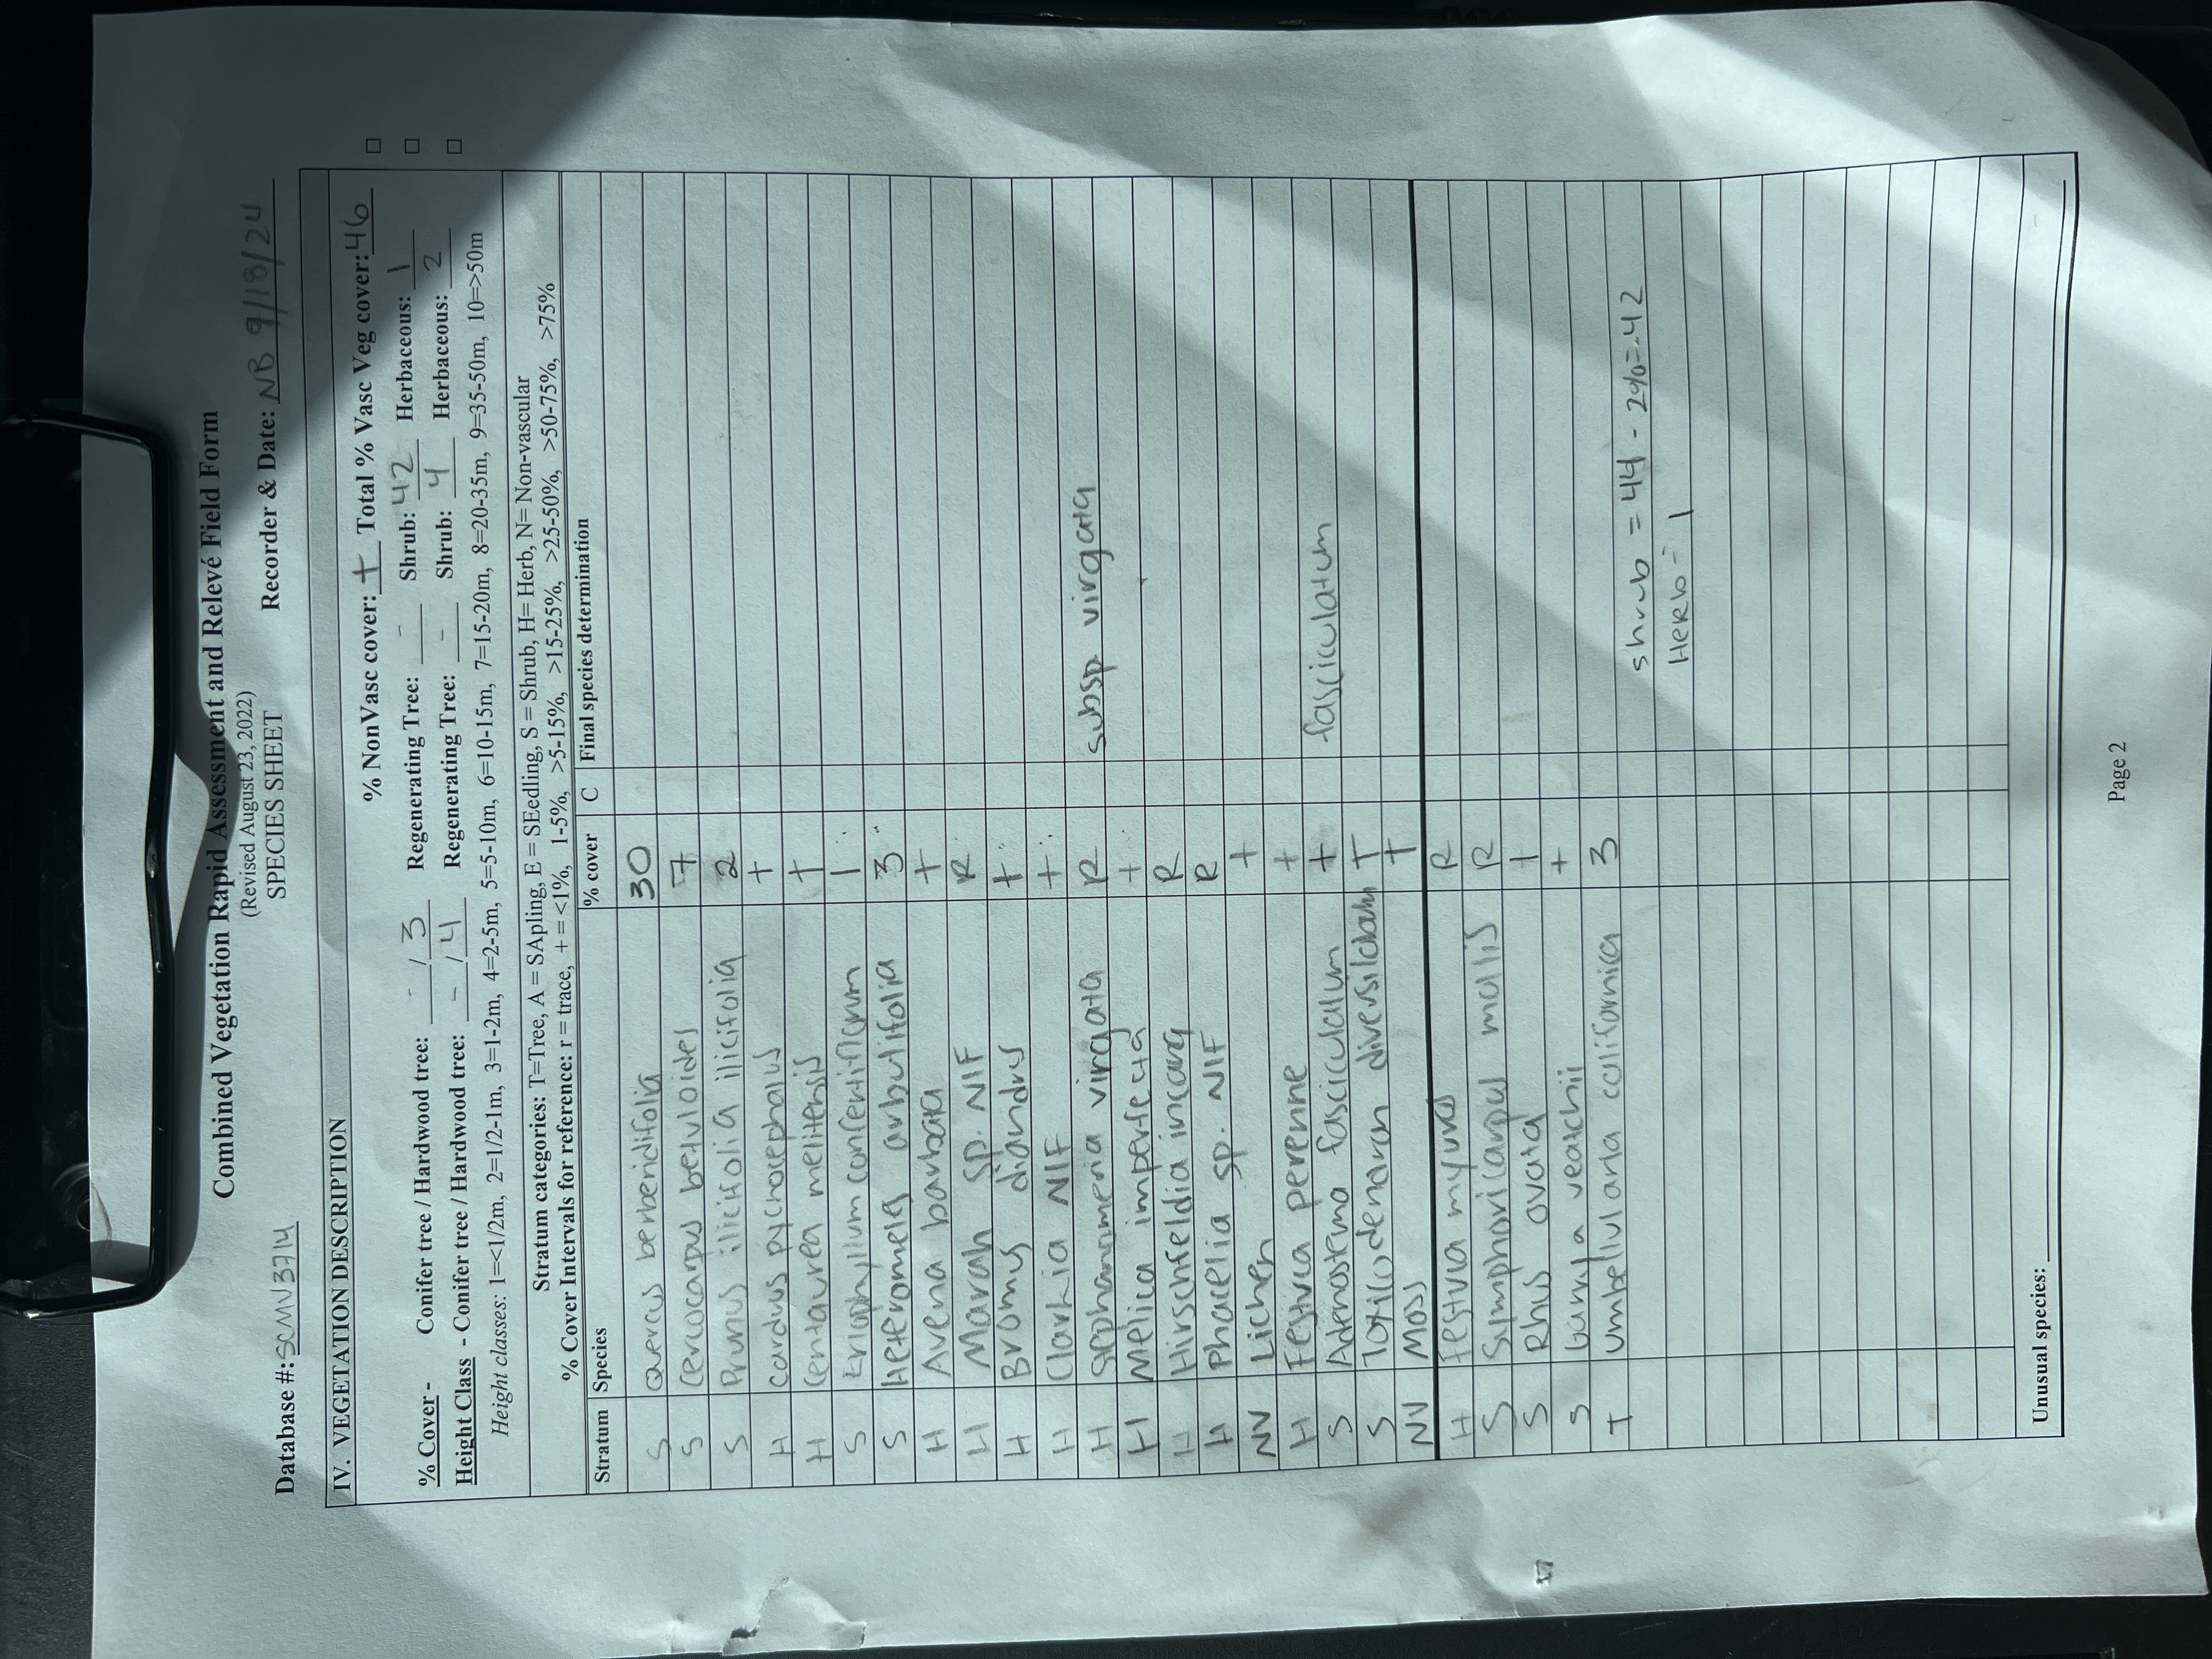 Combined Vegetation Rapid Assessment and Relevé Field Form
(Revised August 23, 2022)
SPECIES SHEET
Database #: SCMV3714 Recorder & Date: NB 9/18/24
IV. VEGETATION DESCRIPTION
% NonVasc cover: + Total % Vasc Veg cover: 46 □
% Cover - Conifer tree / Hardwood tree: - / 3 Regenerating Tree: - Shrub: 42 Herbaceous: 1 □
Height Class - Conifer tree / Hardwood tree: - / 4 Regenerating Tree: - Shrub: 4 Herbaceous: 2 □
Height classes: 1=<1/2m, 2=1/2-1m, 3=1-2m, 4=2-5m, 5=5-10m, 6=10-15m, 7=15-20m, 8=20-35m, 9=35-50m, 10=>50m
Stratum categories: T=Tree, A = SApling, E = SEedling, S = Shrub, H= Herb, N= Non-vascular
% Cover Intervals for reference: r = trace, + = <1%, 1-5%, >5-15%, >15-25%, >25-50%, >50-75%, >75%
Stratum Species % cover C Final species determination
S Quercus berberidifolia 30
S Cercocarpus betuloides 7
S Prunus ilicifolia ilicifolia 2
H Carduus pycnocephalus +
H Centaurea melitensis +
S Eriophyllum confertiflorum 1
S Heteromela arbutifolia 3
H Avena barbata +
H Marah sp. NIF R
H Bromus diandrus +
H Clarkia NIF +
H Stephanomeria virgata R subsp virgata
H Melica imperfecta +
H Hirschfeldia incana R
H Phacelia sp. NIF R
NV Lichen +
H Festuca perenne +
S Adenostema fasciculatum + fasciculatum
S Toxicodendron diversilobum +
NV Moss +
H Festuca myuros R
S Symphoricarpus mollis R
S Rhus ovata 1
S Garrya veatchii +
T Umbellularia californica 3
shrub = 44 - 2% = 42
Herb - 1
Unusual species:
Page 2